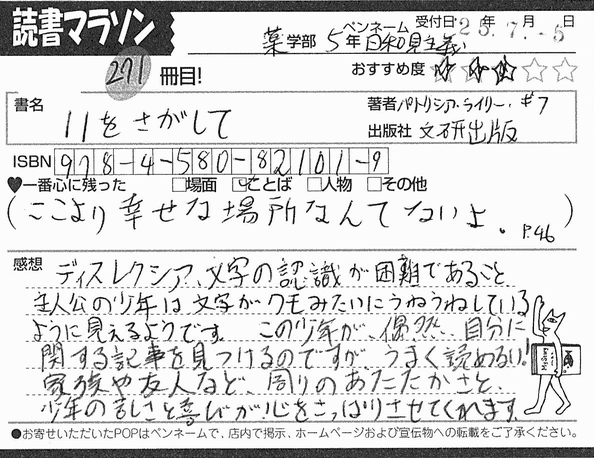 読書マラソン
薬学部 5年 ペンネーム 日和見主義 受付日 '25年 7月 -5日
271 冊目!
おすすめ度 ☆☆☆☆☆
書名
11をさがして
著者 パトリシア・ライリー・ギフ
出版社 文研出版
ISBN 978-4-580-82101-9
♥一番心に残った □場面 □ことば □人物 □その他
(ここより幸せな場所なんてないよ。P.46)
感想 ディスレクシア、文字の認識が困難であること
主人公の少年は文字がクモみたいにうねうねしている
ように見えるようです。この少年が、偶然、自分に
関する記事を見つけるのですが、うまく読めない!
家族や友人など、周りのあたたかさと、
少年の苦しさと喜びが心をさっぱりさせてくれます。
●お寄せいただいたPOPはペンネームで、店内で掲示、ホームページおよび宣伝物への転載をご了承ください。